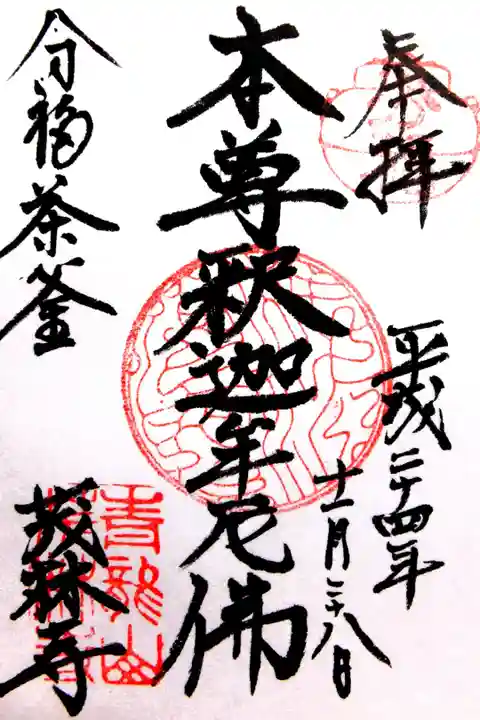 奉拝
平成二十四年
十一月二十八日
本尊釈迦牟尼佛
分福茶釜
茂林寺
青龍山
茂林寺